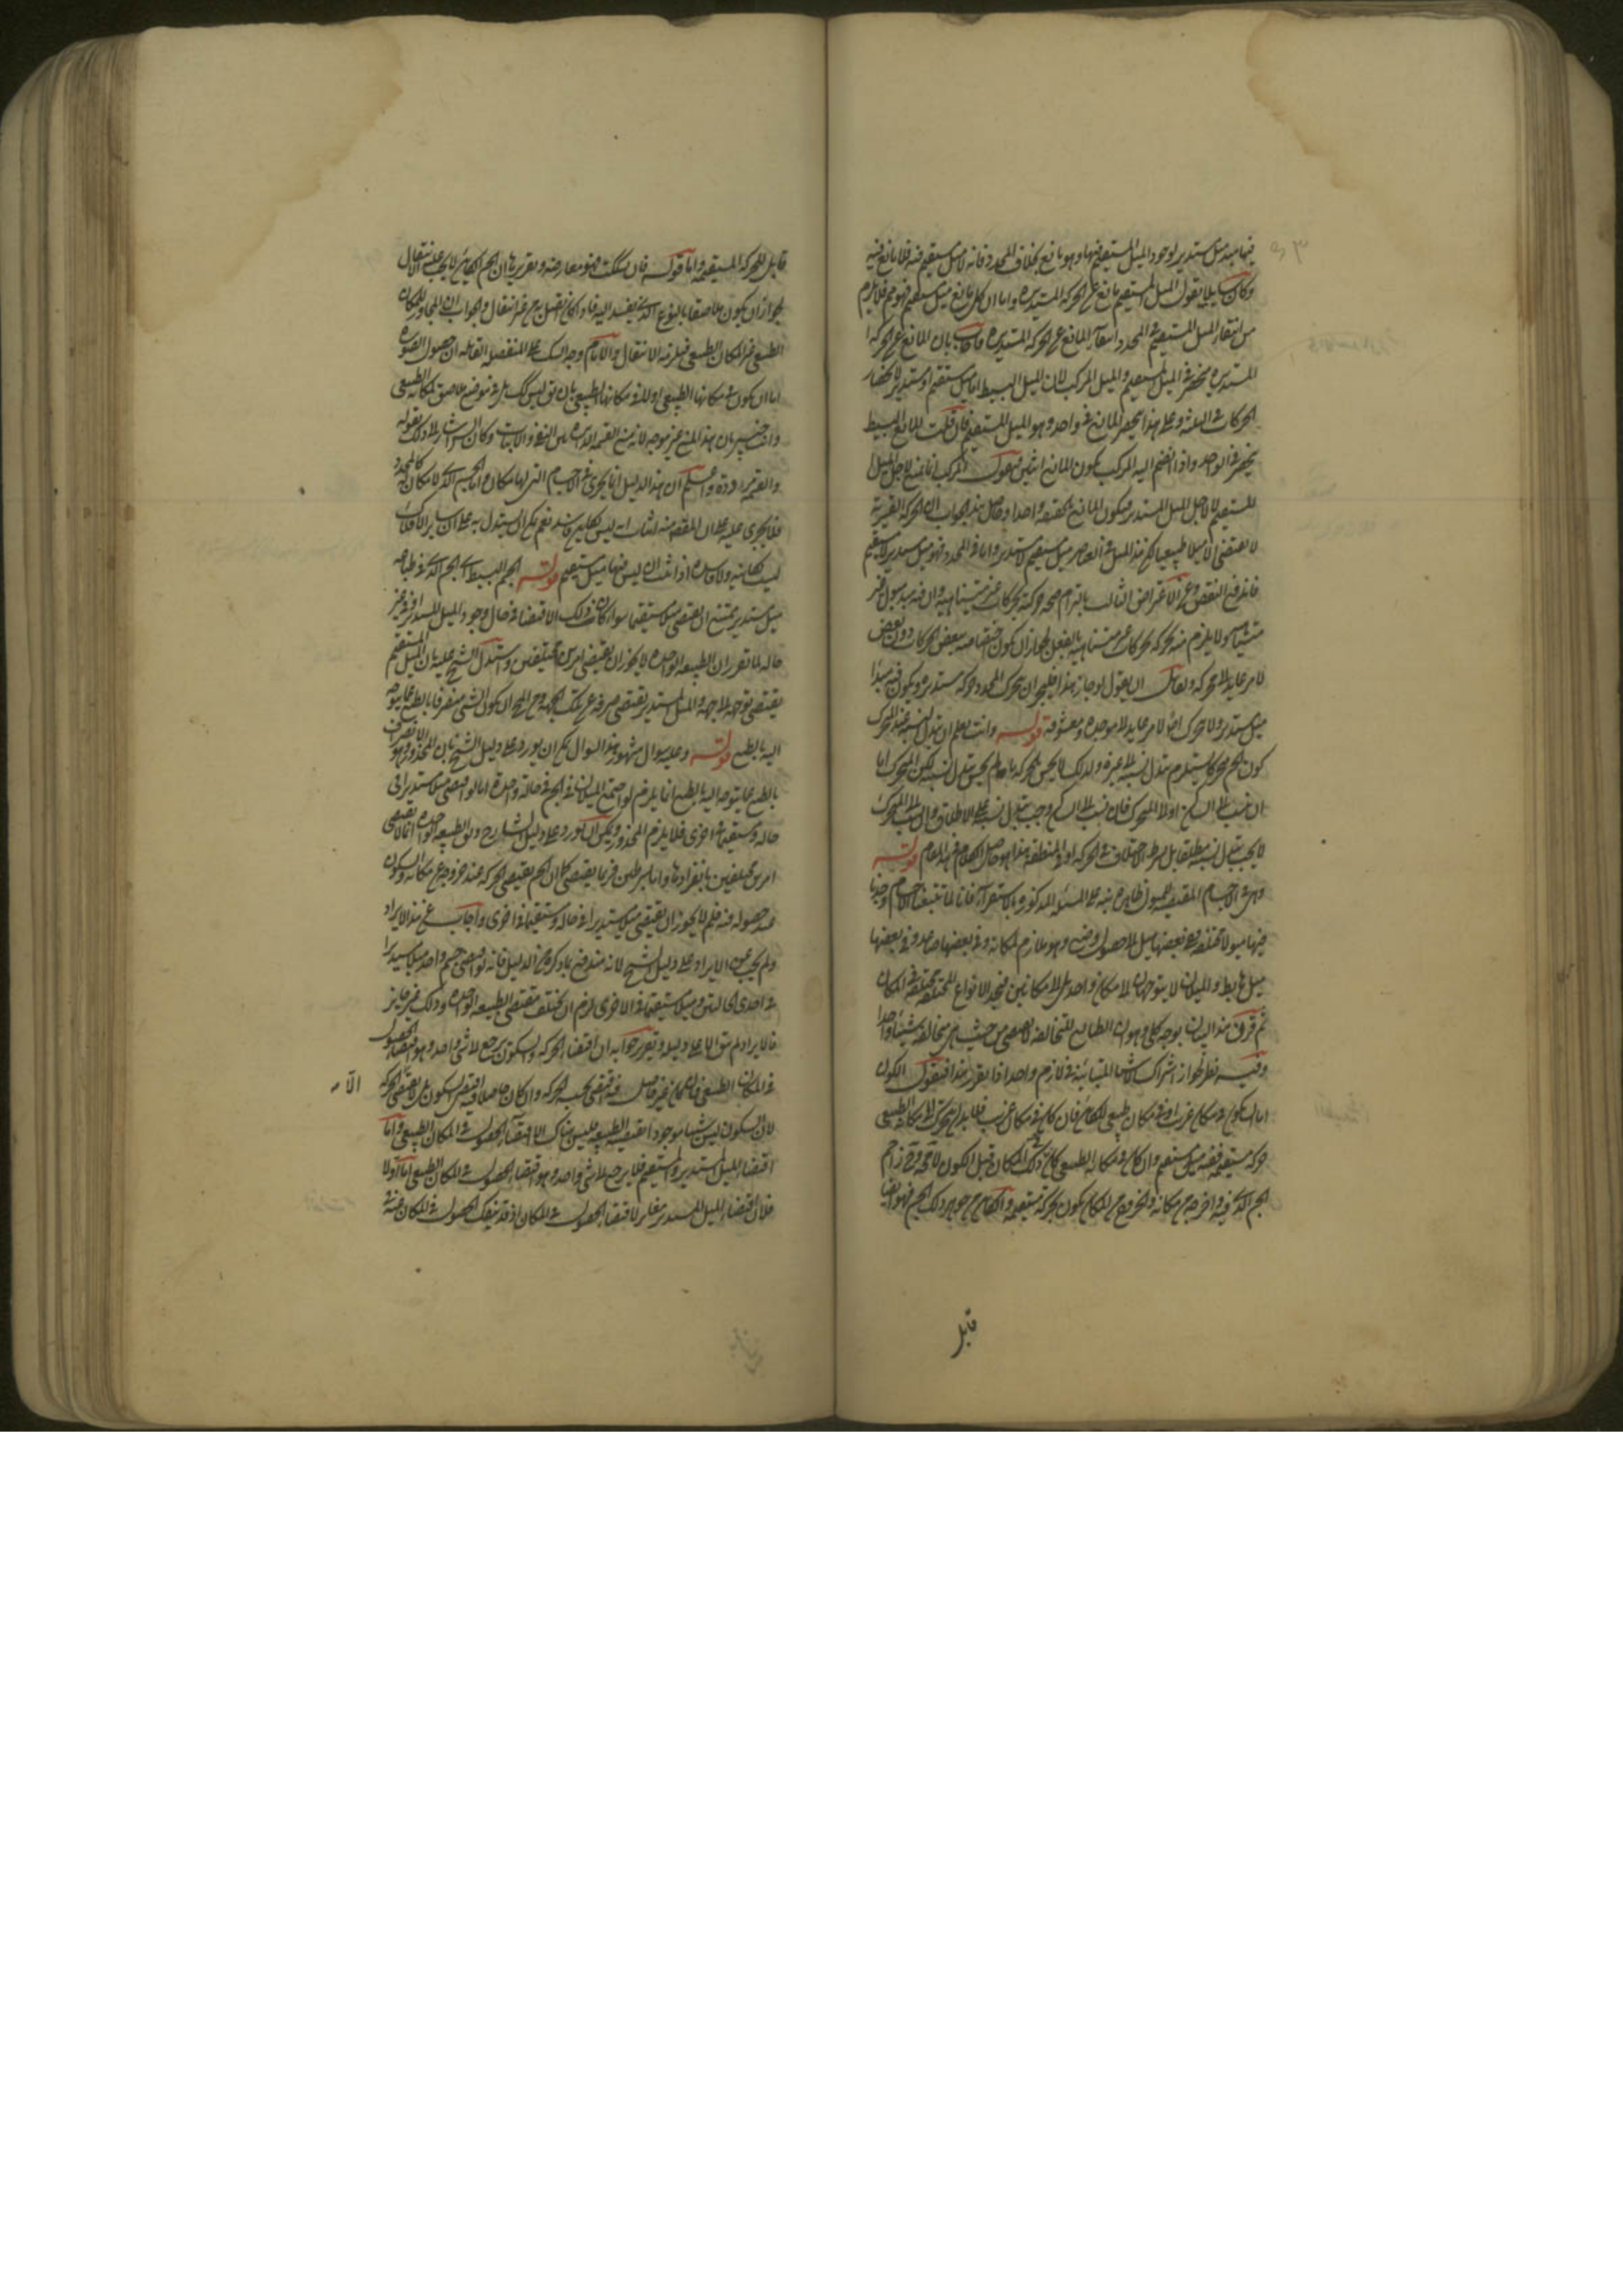 فيها مبدء ميل مستدير لوجود الميل المستقيم فيها وهو مانع بخلاف المحدد فانه لا ميل مستقيم فيه فلا مانع فيه
وكان سايلا يقول الميل المستقيم مانع عن الحركة المستديرة واما ان كل مانع ميل مستقيم فهو مم فلا يلزم
من انتفاء الميل المستقيم في المحدد انتفاء المانع عن الحركة المستديرة فاجاب بان المانع عن الحركة
المستديرة منحصر في الميل المستقيم والميل المركب لان الميل البسيط اما ميل مستقيم او مستدير لانحصار
الحركات في الثلثة وعلى هذا ينحصر المانع في واحد وهو الميل المستقيم فان قلت المانع البسيط
ينحصر في الواحد واذا انضم اليه المركب يكون المانع اثنين فنقول المركب انما يمنع لاجل الميل
المستقيم لا لاجل الميل المستدير فيكون المانع بالحقيقة واحدا وحاصل هذا الجواب ان الحركة القسرية
لا تقتضي الا ميلا طبيعيا لكن هذا الميل في العناصر ميل مستقيم لا مستدير واما في المحدد فهو ميل مستدير لا مستقيم
فاندفع النقض وعن الاعتراض الثالث بالتزام صحة حركته بحركات غير متناهية وان فيه ميول غير
متناهية ولا يلزم منه تحركه بحركات غير متناهية بالفعل لجواز ان يكون اختصاصه ببعض الحركات دون بعض
لامر عايد الى محركه ولقائل ان يقول لو جاز هذا فليجز ان يتحرك المحدد حركة مستديرة ويكون فيه مبدأ
ميل مستدير ولا يتحرك اصلا لامر عايد الى موجده ومعشوقه قوله وانت تعلم ان تبدل النسبة عند المتحرك
كون الجسم متحركا يستلزم تبدل نسبته الى غيره ولذلك لا يحس بالحركة ما لم يحس بتبدل النسبة لكن المتحرك اما
ان ينسب الى الساكن او الى المتحرك فان نسب الى الساكن وجب تبدل نسبته على الاطلاق وان نسب الى المتحرك
لا يجب تبدل النسبة مطلقا بل بشرط الاختلاف في الحركة او في المنطقة هذا هو حاصل الكلام في هذا المقام قوله
وفي الاجسام المقتضية لميول طبيعية على المسئلة المذكورة بالاستقراء فانا لما تتبعنا الاجسام وجدنا
فيها ميولا مختلفة ففي بعضها ميل الى حصول وضع وهو ملازم لمكانه وفي بعضها صاعد وفي بعضها
ميل هابط والميلان لا يتوجهان الى مكان واحد بل الى مكانين فنجد الانواع المختلفة مختلفة في المكان
ثم قرر هذا البيان بوجه كلي وهو ان الطبايع المتخالفة لا تقتضي من حيث هي متخالفة شيئا واحدا
وفيه نظر لجواز اشتراك الاشياء المتباينة في لازم واحد اذا تقرر هذا فنقول الكون
اما ان يكون في مكان غريب او في مكان طبيعي للكائن فان كان في مكان غريب فلا بد ان يتحرك الى مكانه الطبيعي
حركة مستقيمة ففيه ميل مستقيم وان كان في مكانه الطبيعي كان ذلك المكان قبل الكون لا محة وقد زاحم
الجسم الذي فيه واخرجه عن مكانه والخروج عن المكان يكون بحركة مستقيمة والكائن من جوهر ذلك الجسم فهو ايضا
قابل
قابل للحركة المستقيمة واما قوله فان شككت فهو معارضة وتقريرها ان الجسم الكاين لا يجب عليه انتقال
لجواز ان يكون ملاصقا بالنوع الذي يفسد اليه فاذا كان اتصل به من غير انتقال والجواب ان المجاور للمكان
الطبيعي غير المكان الطبيعي فيلزمه الانتقال والالزام وجه الشك على المنفصلة القايلة ان حصول الصورة
اما ان يكون في مكانها الطبيعي او لا في مكانها الطبيعي بان يق ليس كك بل في موضع ملاصق لمكانه الطبيعي
وانت خبير بان هذا المنع غير موجه لانه منع القسمة الدايرة بين النفي والاثبات وكان الشارح اشار الى ذلك بقوله
والقسمة مترددة واعلم ان هذا الدليل انما يجري في الاجسام التي لها مكان واما الجسم الذي لا مكان له كالمحدد
فلا يجري عليه على ان المقصود منه اثبات انه ليس بكاين فاسد نعم يمكن ان يستدل به على ان ساير الافلاك
ليست كاينة ولا فاسدة اذا ثبت ان ليس فيها ميل مستقيم قوله الجسم البسيط اي الجسم الذي في طباعه
ميل مستدير يمتنع ان يقتضي ميلا مستقيما سواء كان ذلك الاقتضاء في حال وجود الميل المستدير او في غير
حاله لما تقرر ان الطبيعة الواحدة لا يجوز ان تقتضي امرين مختلفين واستدل الشيخ عليه بان الميل المستقيم
يقتضي توجه الى جهة والميل المستدير يقتضي صرفه عن تلك الجهة ومن المحال ان يكون الشئ منصرفا بالطبع عما يتوجه
اليه بالطبع قوله وعليه سوال مشهور هذا السوال يمكن ان يورد على دليل الشيخ بان المحذور وهو الانصراف
بالطبع عما يتوجه اليه بالطبع انما يلزم لو اجتمع الميلان في الجسم في حالة واحدة اما لو اقتضى ميلا مستديرا في
حالة ومستقيما في اخرى فلا يلزم المحذور ويمكن ان يورد على دليل الشارح وان الطبيعة الواحدة انما لا تقتضي
امرين مختلفين بانفرادها واما بشرطين فربما يقتضي كما ان الجسم يقتضي الحركة عند خروجه عن مكانه والسكون
عند حصوله فيه فلم لا يجوز ان يقتضي ميلا مستديرا في حالة ومستقيما في اخرى واجاب عن هذا الايراد
ولم يجب عن الايراد على دليل الشيخ لانه مندفع بما ذكره في الدليل فانه لو اقتضى جسم واحد ميلا مستديرا
في احدى الحالتين وميلا مستقيما في الاخرى لزم ان يختلف مقتضى الطبيعة الواحدة وذلك غير جايز
فالايراد لم يبق الا على دليله وتقرير جوابه ان اقتضاء الحركة والسكون يرجع الى شئ واحد وهو اقتضاء الحصول
في المكان الطبيعي فان كان غير حاصل فيه اقتضى بحسبه الحركة وان كان حاصلا فيه اقتضى السكون بل لا يقتضي الحركة
الا
لان السكون ليس شيئا موجودا تقتضيه الطبيعة فليس هناك الا اقتضاء الحصول في المكان الطبيعي واما
اقتضاء الميل المستدير والمستقيم فلا يرجع الى شئ واحد وهو اقتضاء الحصول في المكان الطبيعي اما اولا
فلان اقتضاء الميل المستدير مغاير لاقتضاء الحصول في المكان اذ قد ينفك الحصول في المكان عنه